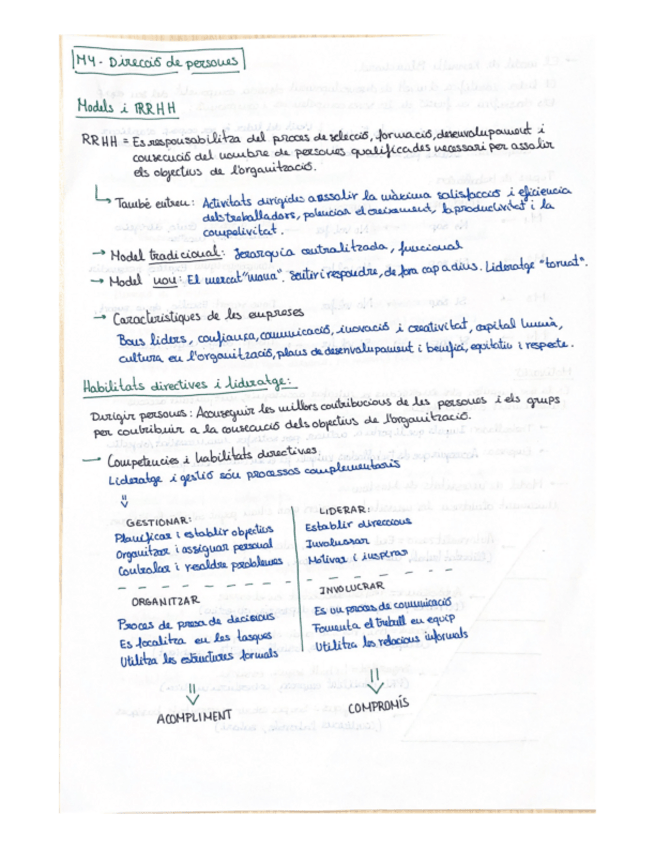 M4 - Direcció de persones
Models i RRHH
RRHH = Es responsabilitza del procés de selecció, formació, desenvolupament i
consecució del nombre de persones qualificades necessari per assolir
els objectius de l'organització.
També entren: Activitats dirigides a assolir la màxima satisfacció i eficiencia
dels treballadors, potenciar el creixement, la productivitat i la
competivitat.
→ Model tradicional: Jerarquia centralitzada, funcional
→ Model nou: El mercat "mana". Sentir i respondre, de fora cap a dins. Lideratge "tornat".
→ Característiques de les empreses
Bons líders, confiança, comunicació, inovació i creativitat, capital humà,
cultura en l'organització, plans de desenvolupament i benefici, equitatiu i respecte.
Habilitats directives i lideratge:
Dirigir persones: Aconseguir les millors contribucions de les persones i els grups
per contribuir a la consecució dels objectius de l'organització.
→ Competencies i habilitats directives
Lideratge i gestió són processos complementaris
⇓
GESTIONAR:
Planificar i establir objectius
Organitzar i assignar personal
Controlar i resoldre problemes
LIDERAR:
Establir direccions
Involucrar
Motivar i inspirar
ORGANITZAR
Procés de presa de decisions
Es focalitza en les tasques
Utilitza les estructures formals
INVOLUCRAR
Es un procés de comunicació
Fomenta el treball en equip
Utilitza les relacions informals
⇓
ACOMPLIMENT
⇓
COMPROMÍS